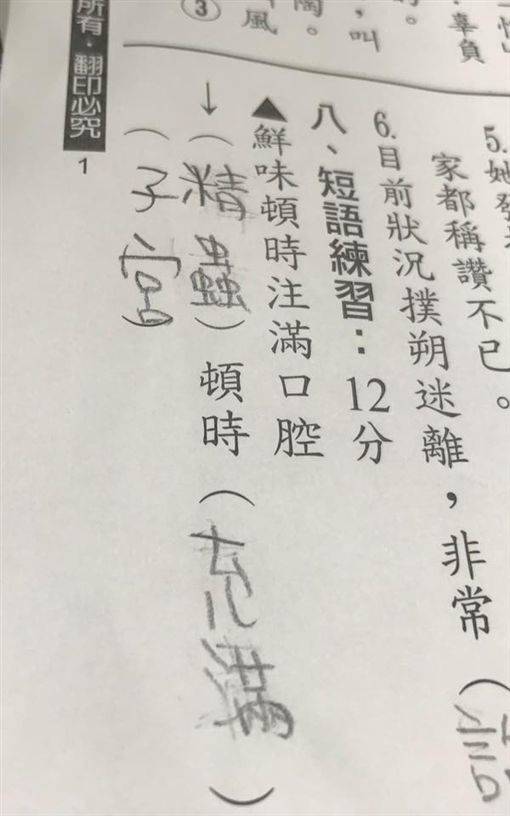 辜負
，叫
陶。
風
③
5.她發
家都稱讚不已。
6.目前狀況撲朔迷離，非常（
八、短語練習：12分
▲鮮味頓時注滿口腔
↓（精蟲）頓時（充滿）
（子宮）
所有‧翻印必究
1